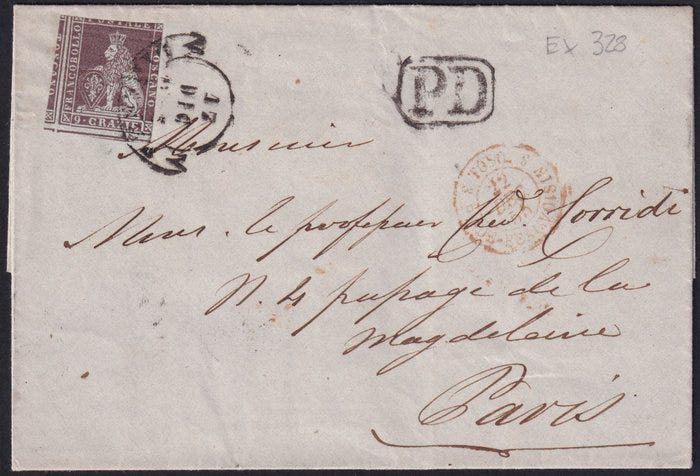 FRANCOBOLLO
POSTALE
TOSCANO
9 · CRAZIE
17
DIC
PD
EX 328
TOSC.
12
Monsieur
Mons. le professeur Chev. Corridi
N. 4 passage de la
Magdeleine
Paris